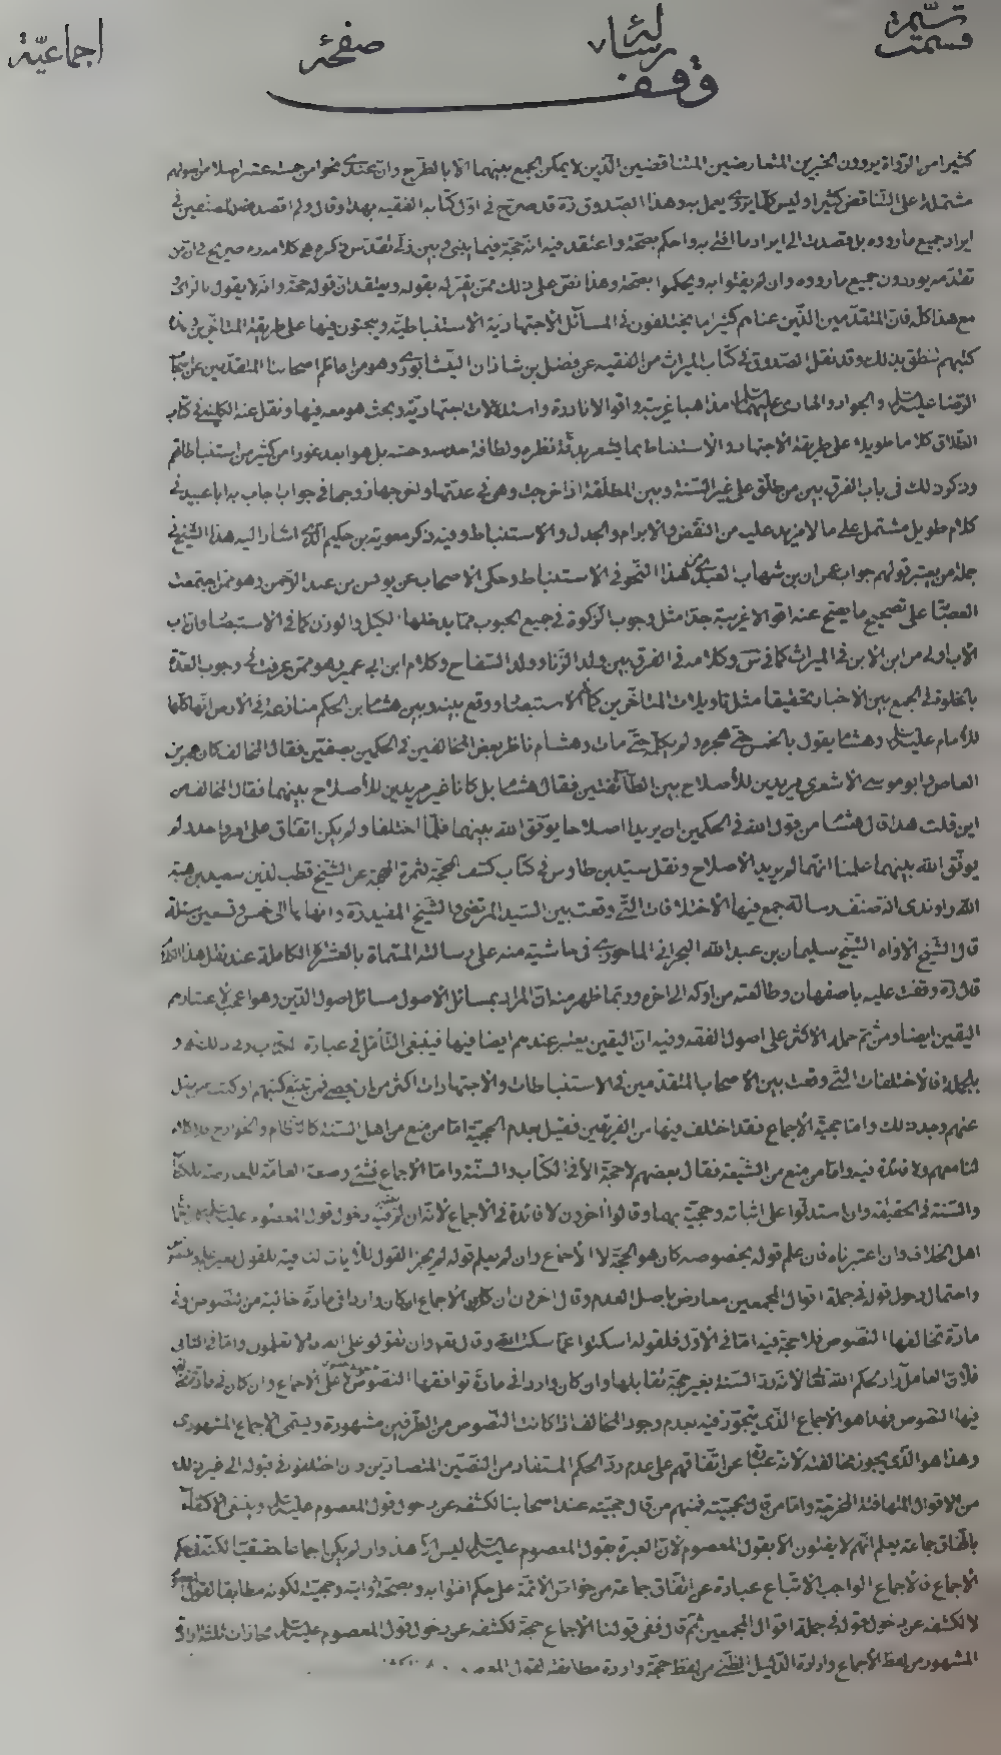 قسمت رسالۀ صفحۀ اجماعيّة
وقف
كثيرا من الرّواة يروون الخبرين المتعارضين المتناقضين الّذين لا يمكن الجمع بينهما الّا بالطرح وان عندى نحوا من خمسة عشر اصلا من اصولهم
مشتملة على التّناقض كثيرا وليس كلّما يروى يعمل به وهذا الصّدوق ره قد صرّح فى اوّل كتابه الفقيه بهذا وقال ولم اقصد قصد المصنفين فى
ايراد جميع ما رووه بل قصدت الى ايراد ما افتى به واحكم بصحّته واعتقد فيه انّه حجّة فيما بينى وبين ربّى تقدّس ذكره كلامه ره صريح فى ان من
تقدّمه يوردون جميع ما رووه وان لم يفتوا به ويحكموا بصحّته وهذا نصّ على ذلك ممّن يقرّ له بقوله ويعتقد انّ قوله حجّة وانّه لا يقول بالرّاى
مع هذا كلّه فانّ المتقدّمين الّذين عناهم كثيرا ما يختلفون فى المسائل الاجتهاديّة الاستنباطيّة ويبحثون فيها على طريقة المتاخّرين وهذا
كتبهم تنطق بذلك وقد نقل الصّدوق فى كتاب الميراث من الفقيه عن فضل بن شاذان النيشابورى وهو من اعاظم اصحابنا المتقدّمين
الرّضا عليه السلام والجواد والهادى عليهما السلام مذاهبا غريبة واقوالا نادرة واستدلالات اجتهاديّة وبحث هو معه فيها ونقل عنه الكلينى فى كتاب
الطّلاق كلاما طويلا على طريقة الاجتهاد والاستنباط بما يشعر بدقّة نظره ولطافة حدسه وحسّه بل هو ابعد غورا من كثير من استنباطاتهم
وذكر ذلك فى باب الفرق بين من طلّق على غير السّنة وبين المطلّقة اذا خرجت وهى فى عدّتها او اخرجها زوجها فى جواب اجاب به ابا عبيد فى
كلام طويل مشتمل على ما لا مزيد عليه من النّقض والابرام والجدل والاستنباط وفيه ذكر معوية بن حكيم الّذى اشار اليه هذا الشّيخ فى
جملة من يعتبر قولهم جواب عمران بن شهاب العبدى هذا النّحو فى الاستنباط وحكى الاصحاب عن يونس بن عبد الرّحمن وهو ممّن اجتمعت
العصابة على تصحيح ما يصحّ عنه اقوالا غريبة جدّا مثل وجوب الزكوة فى جميع الحبوب ممّا يدخلها الكيل والوزن كما فى الاستبصار وان اب
الاب اولى من ابن الابن فى الميراث كما فى وكلامه فى الفرق بين ولد الزّنا وولد السّفاح وكلام ابن ابى عمير وهو ممّن عرفت فى وجوب العدّة
بالخلوة فى الجمع بين الاخبار تحقيقا مثل تاويلات المتاخّرين كما فى الاستبصار ووقع بينه وبين هشام بن الحكم منازعة فى الارض انّها كلّها
للامام عليه السلام وهشام يقول بالخمس حتّى هجره ولم يكلّمه حتّى مات وهشام ناظر بعض المخالفين فى الحكمين بصفّين فقال المخالف كان عمرو بن
العاص وابو موسى الاشعرى مريدين للأصلاح بين الطّائفتين فقال هشام بل كانا غير مريدين للأصلاح بينهما فقال المخالف من
اين قلت هذا قال هشام من قول الله فى الحكمين ان يريدا اصلاحا يوفّق الله بينهما فلمّا اختلفا ولم يكن اتفاق على امر واحد ولم
يوفّق الله بينهما علمنا انّهما لم يريدا الاصلاح ونقل سيّد بن طاوس فى كتاب كشف المحجّة لثمرة المهجة عن الشّيخ قطب الدّين سعيد بن هبة
الله راوندى انّه صنّف رسالة جمع فيها الاختلافات الّتى وقعت بين السّيد المرتضى والشّيخ المفيد ره وانهاها الى خمس وتسعين مسئلة
قال الشّيخ الاواه الشّيخ سليمان بن عبد الله البحرانى الماحوزى فى حاشية منه على رسالته المسمّاة بالعشرة الكاملة عند نقل هذا الكلام
قال ره وقفت عليه باصفهان وطالعته من اوّله الى اخره وربّما ظهر منه انّ المراد بمسائل الاصول مسائل اصول الدّين وهو اعجب لاعتبارهم
اليقين ايضا ومن ثمّ حمله الاكثر على اصول الفقه وفيه انّ اليقين يعتبر عندهم ايضا فيها فينبغى التّأمّل فى عبارة
بالجملة فالاختلافات الّتى وقعت بين الاصحاب المتقدّمين فى الاستنباطات والاجتهادات اكثر من ان يحصى فمن تتبّع كتبهم او كتب من ينقل
عنهم وجد ذلك وامّا حجيّة الأجماع فقد اختلف فيها من الفريقين فقيل بعدم الحجيّة امّا من منع من اهل السّنة كالنّظام والخوارج فلا كلام
لنا معهم ولا فائدة فيه وامّا من منع من الشّيعة فقال بعضهم لا حجّة الّا فى الكتاب والسّنّة وامّا الاجماع فشىء وضعه العامّة
والسّنّة فى الحقيقة وان استدلّوا على اثباته وحجيّته بهما وقالوا آخرون لا فائدة فى الاجماع لانّه ان لم نعتبر فيه دخول قول المعصوم عليه السلام
اهل الخلاف وان اعتبرناه فان علم قوله بخصوصه كان هو الحجّة لا الاجماع وان لم يعلم قوله لم يجز القول
واحتمال دخول قوله فى جملة اقوال المجمعين معارض باصل العدم وقال اخرون ان كان الاجماع ان كان واردا فى مادّة خالية من نصوص وفى
مادّة تخالفها النّصوص فلا حجّة فيه امّا فى الاوّل فلقوله اسكتوا عمّا سكت الله وقال تعالى وان تقولوا على الله ما لا تعلمون وامّا فى الثّانى
فلأنّ العامل رادّ لحكم الله تعالى لانّه ردّ السّنّة بغير حجّة تقابلها وان كان واردا فى مادّة توافقها النّصوص لا على الاجماع وان كان فى مادّة
فيها النّصوص فهذا هو الاجماع الّذى يتجوّز فيه بعدم وجود المخالف اذا كانت النّصوص من الطّرفين مشهورة ويسمّى الاجماع المشهورى
وهذا هو الّذى يجوز مخالفته لأنّه عبارة عن اتّفاقهم على عدم ردّ الحكم المستفاد من النّصّين المتضادّين وان اختلفوا فى قبوله الى غير ذلك
من الاقوال المتهافتة الخرقيّة وامّا من قال بحجيّته فمنهم من قال حجيّته عند اصحابنا لكشفه عن دخول قول المعصوم عليه السلام
باتّفاق جماعة يعلم انّهم لا يفتون الّا بقول المعصوم لأنّ العبرة بقول المعصوم عليه السلام ليس الّا هذا وان لم يكن اجماعا حقيقيّا لكنّه فى حكم
الاجماع فالاجماع الواجب الاتّباع عبارة عن اتّفاق جماعة من خواصّ الائمّة على حكم افتوا به وبصحّة روايته وحجيّته لكونه مطابقا لقول المعصوم
لا لكشفه عن دخول قوله فى جملة اقوال المجمعين ثمّ قال ففى قولنا الأجماع حجّة لكشفه عن دخول قول المعصوم عليه السلام مجازات ثلثة ارادة
المشهور من لفظ الأجماع وارادة الدّليل الظنّى من لفظ حجّة وارادة مطابقته لقول